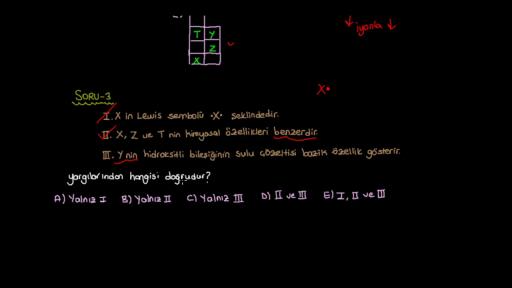 T Y
Z
X
↓ iyonla ↓
X•
SORU-3
I. X in Lewis sembolü •X• şeklindedir.
II. X, Z ve T nin kimyasal özellikleri benzerdir.
III. Y nin hidroksitli bileşiğinin sulu çözeltisi bazik özellik gösterir.
yargılarından hangisi doğrudur?
A) Yalnız I B) Yalnız II C) Yalnız III D) II ve III E) I, II ve III